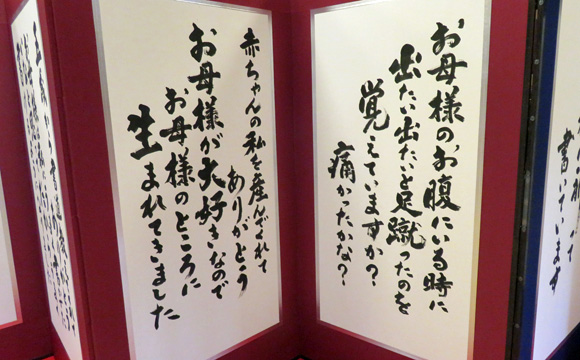 お母様のお腹にいる時に
出たい出たいと足蹴ったのを
覚えていますか？
痛かったかな？
赤ちゃんの私を産んでくれて
ありがとう
お母様が大好きなので
お母様のところに
生まれてきました
書いています